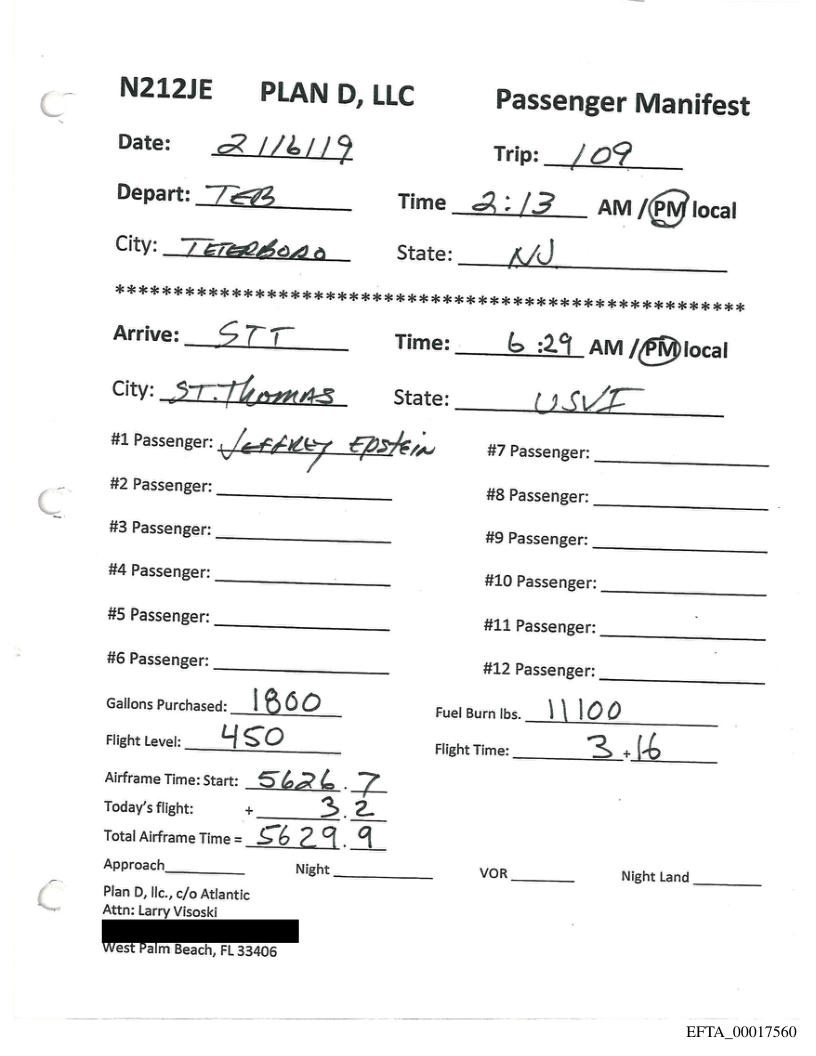 N212JE PLAN D, LLC Passenger Manifest
Date: 2/16/19 Trip: 109
Depart: TEB Time 2:13 AM / PM local
City: TETERBORO State: NJ
******************************************************
Arrive: STT Time: 6:29 AM / PM local
City: ST. Thomas State: USVI
#1 Passenger: JEFFREY EPSTEIN #7 Passenger:
#2 Passenger: #8 Passenger:
#3 Passenger: #9 Passenger:
#4 Passenger: #10 Passenger:
#5 Passenger: #11 Passenger:
#6 Passenger: #12 Passenger:
Gallons Purchased: 1800 Fuel Burn lbs. 11100
Flight Level: 450 Flight Time: 3 + 16
Airframe Time: Start: 5626.7
Today's flight: + 3.2
Total Airframe Time = 5629.9
Approach Night VOR Night Land
Plan D, llc., c/o Atlantic
Attn: Larry Visoski
West Palm Beach, FL 33406
EFTA_00017560